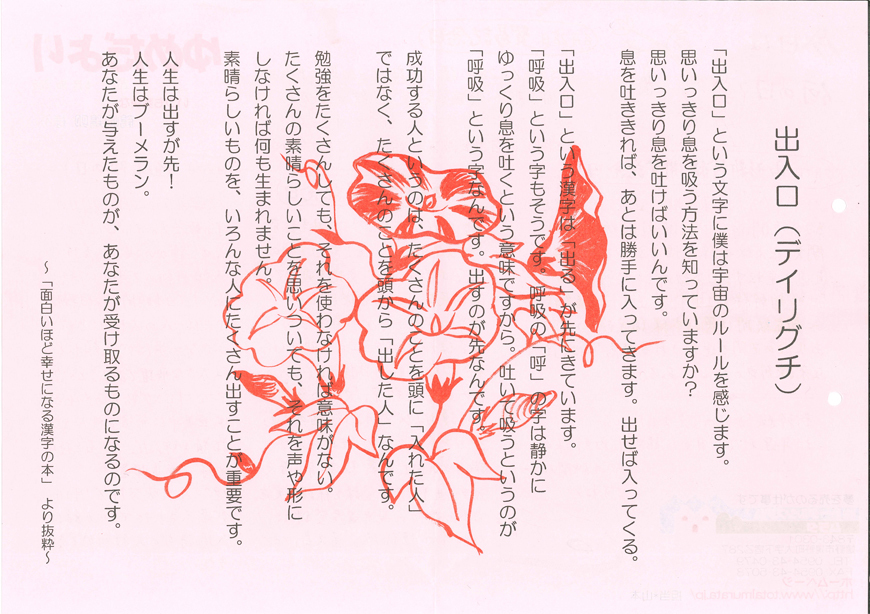 出入口（デイリグチ）
「出入口」という文字に僕は宇宙のルールを感じます。
思いっきり息を吸う方法を知っていますか？
思いっきり息を吐けばいいんです。
息を吐ききれば、あとは勝手に入ってきます。出せば入ってくる。
「出入口」という漢字は「出る」が先にきています。
「呼吸」という字もそうです。呼吸の「呼」の字は静かに
ゆっくり息を吐くという意味ですから。吐いて吸うというのが
「呼吸」という字なんです。出すのが先なんです。
成功する人というのは、たくさんのことを頭に「入れた人」
ではなく、たくさんのことを頭から「出した人」なんです。
勉強をたくさんしても、それを使わなければ意味がない。
たくさんの素晴らしいことを思いついても、それを声や形に
しなければ何も生まれません。
素晴らしいものを、いろんな人にたくさん出すことが重要です。
人生は出すが先！
人生はブーメラン。
あなたが与えたものが、あなたが受け取るものになるのです。
～「面白いほど幸せになる漢字の本」より抜粋～
ゆめだより